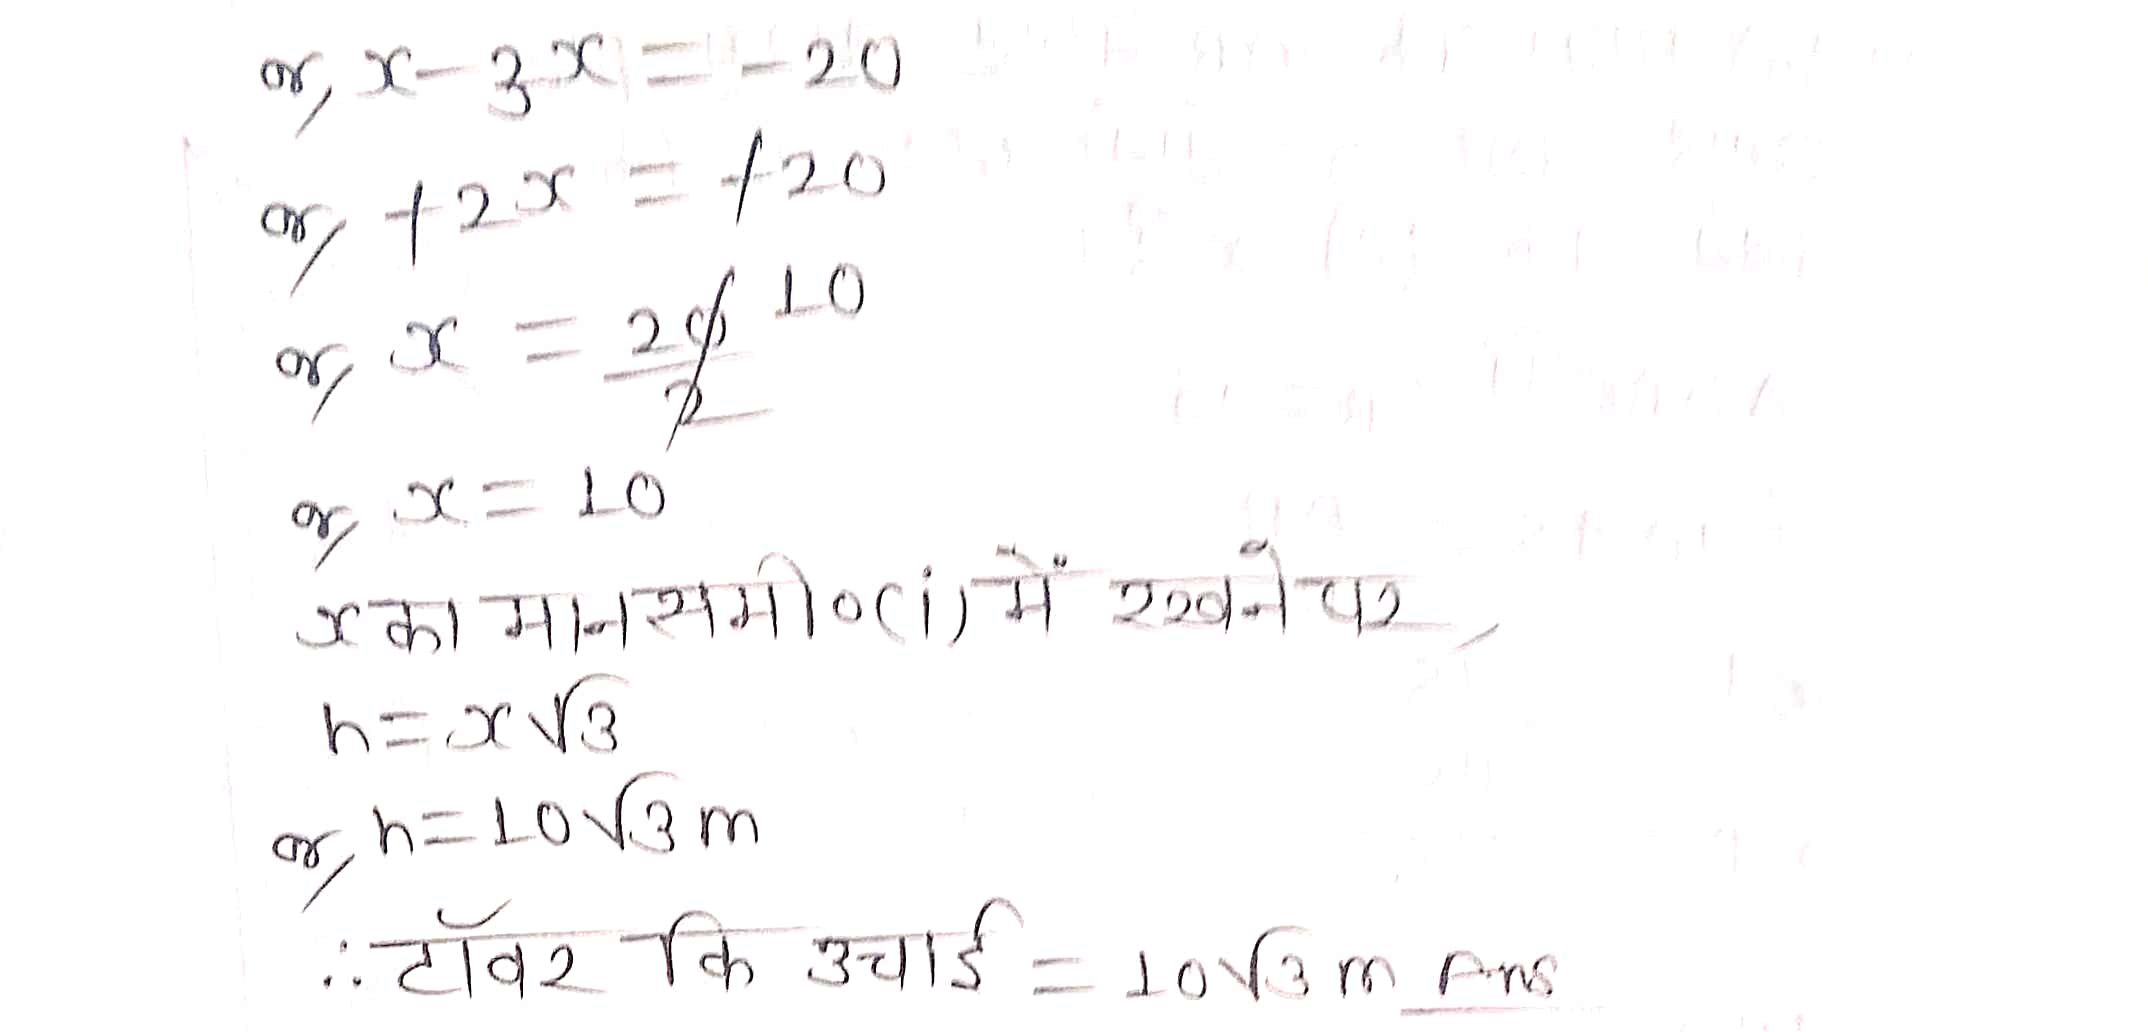 or, x - 3x = - 20
or, + 2x = + 20
or, x = 20/2 10
or, x = 10
x का मान समी०(i) में रखने पर,
h = x√3
or, h = 10√3 m
∴ टॉवर कि उचाई = 10√3 m Ans